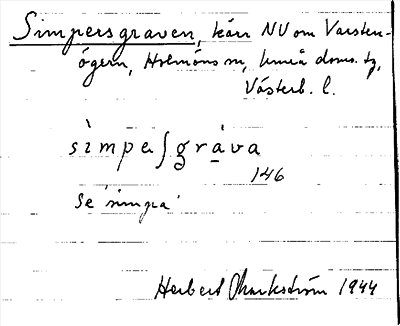 Simpersgraven, kärr NV om Varsten-
ögern, Holmöns sn, Umeå doms. tg,
Västerb. l.
sìmpeʃgrάva
146
Se 'simpa'
Herbert Markström 1944